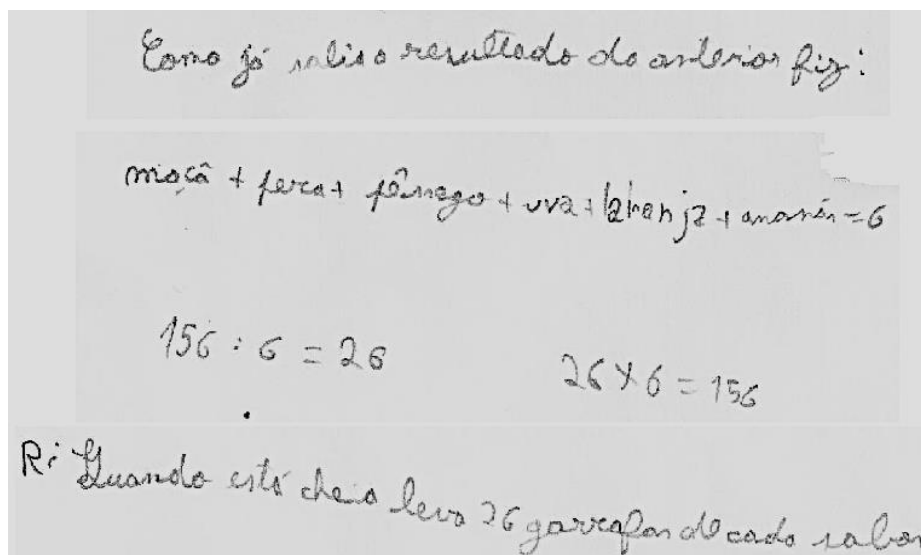 Como já sabia o resultado do anterior fiz:
maçã + pera + pêssego + uva + laranja + ananás = 6
156 : 6 = 26 26 X 6 = 156
R: Quando está cheia leva 26 garrafas de cada sabor